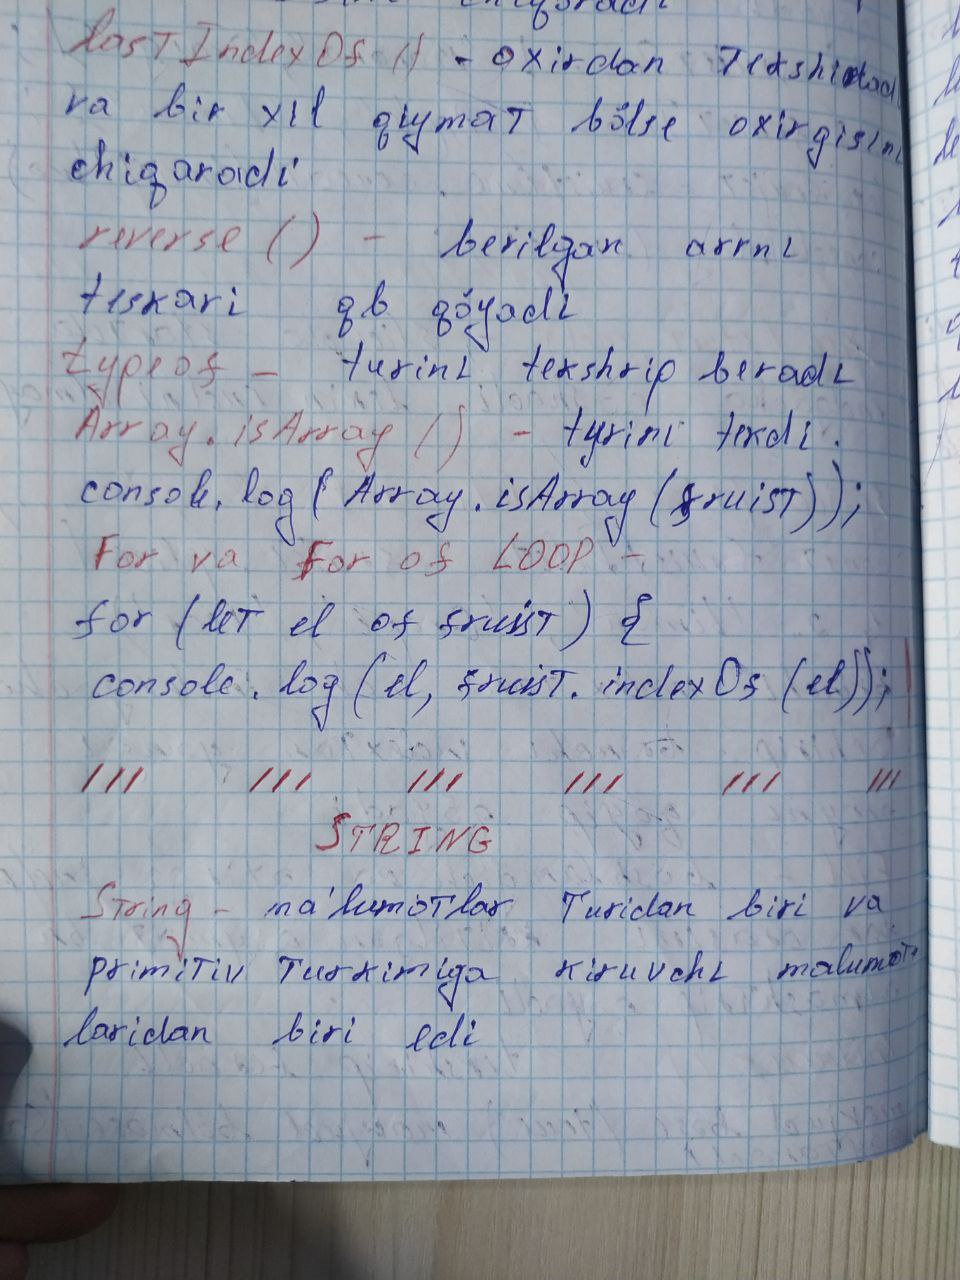 chiqaradi
lastIndexOf () - oxirdan Tekshiradi
va bir xil qiymat bõlse oxirgisini
chiqaradi
reverse () - berilgan arrni
teskari qb qõyadi
typeof - turini tekshrip beradi
Array.isArray () - tyrini texdi.
console.log(Array.isArray(fruist));
For va For of LOOP -
for (let el of fruist) {
console.log(el, fruist.indexOf(el));
/// /// /// /// /// ///
STRING
String - ma'lumotlar Turidan biri va
primitiv Turkimiga kiruvchi malumot
laridan biri edi